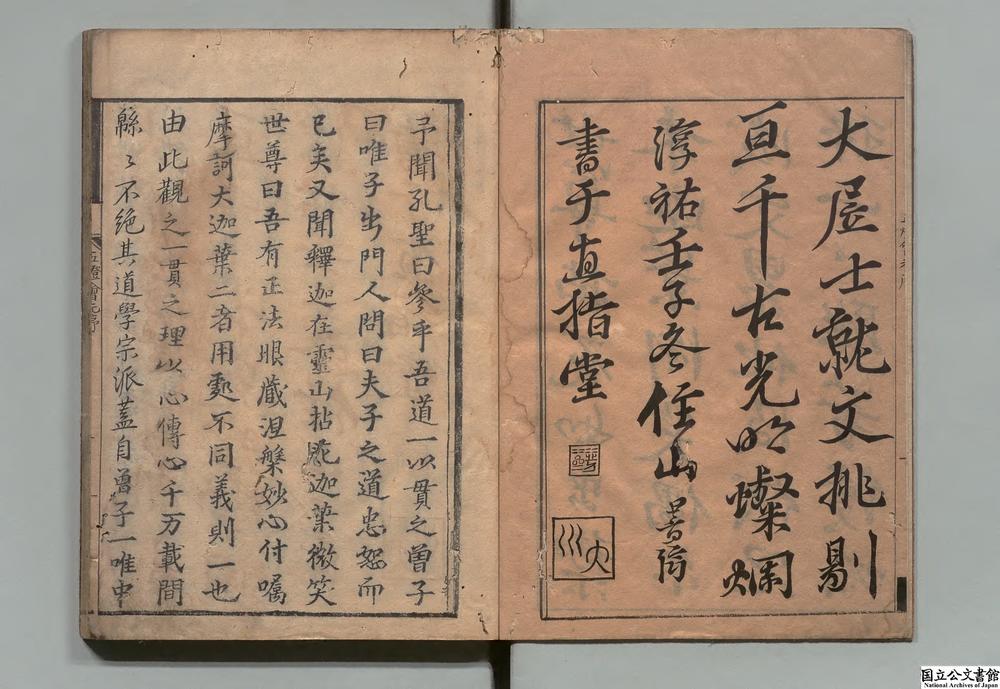 大居士就文挑剔
亘千古光明燦爛
淳祐壬子冬住山普濟
書于直指堂
予聞孔聖曰參乎吾道一以貫之曽子
曰唯子出門人問曰夫子之道忠恕而
已矣又聞釋迦在靈山拈花迦葉微笑
世尊曰吾有正法眼蔵涅槃妙心付嘱
摩訶大迦葉二者用處不同義則一也
由此觀之一貫之理以心傳心千万載間
緜〻不絶其道學宗派蓋自曽子一唯中
五燈會元序
国立公文書館
National Archives of Japan